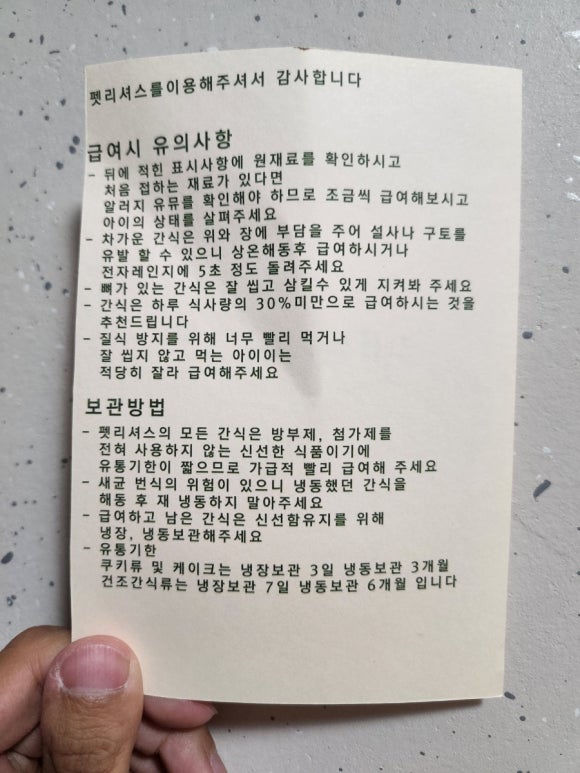 펫리셔스를이용해주셔서 감사합니다
급여시 유의사항
- 뒤에 적힌 표시사항에 원재료를 확인하시고
처음 접하는 재료가 있다면
알러지 유뮤를 확인해야 하므로 조금씩 급여해보시고
아이의 상태를 살펴주세요
- 차가운 간식은 위와 장에 부담을 주어 설사나 구토를
유발 할 수 있으니 상온해동후 급여하시거나
전자레인지에 5초 정도 돌려주세요
- 뼈가 있는 간식은 잘 씹고 삼킬수 있게 지켜봐 주세요
- 간식은 하루 식사량의 30%미만으로 급여하시는 것을
추천드립니다
- 질식 방지를 위해 너무 빨리 먹거나
잘 씹지 않고 먹는 아이이는
적당히 잘라 급여해주세요
보관방법
- 펫리셔스의 모든 간식은 방부제, 첨가제를
전혀 사용하지 않는 신선한 식품이기에
유통기한이 짧으므로 가급적 빨리 급여해 주세요
- 세균 번식의 위험이 있으니 냉동했던 간식을
해동 후 재 냉동하지 말아주세요
- 급여하고 남은 간식은 신선함유지를 위해
냉장, 냉동보관해주세요
- 유통기한
쿠키류 및 케이크는 냉장보관 3일 냉동보관 3개월
건조간식류는 냉장보관 7일 냉동보관 6개월 입니다